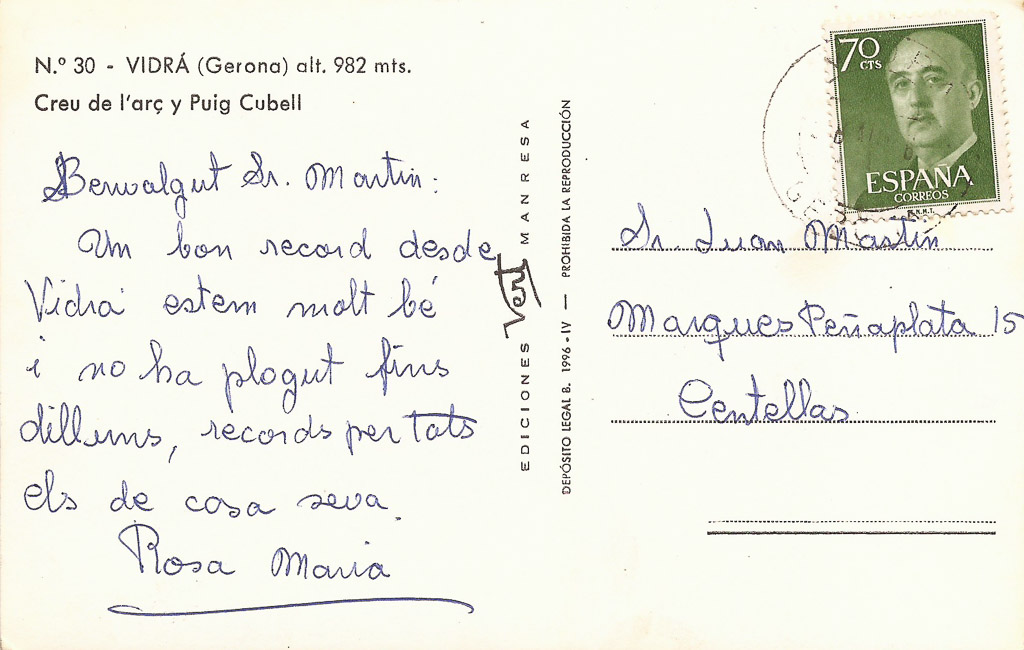 N.º 30 - VIDRÁ (Gerona) alt. 982 mts.
Creu de l'arç y Puig Cubell
Benvalgut Sr. Martin:
Un bon record desde
Vidrá estem molt bé
i no ha plogut fins
dilluns, records per tots
els de casa seva.
Rosa Maria
EDICIONES Vert MANRESA
DEPÓSITO LEGAL B. 1996-IV — PROHIBIDA LA REPRODUCCIÓN
70 CTS
ESPAÑA
CORREOS
F.N.M.T.
Sr. Juan Martin
Marques Peñaplata 15
Centellas